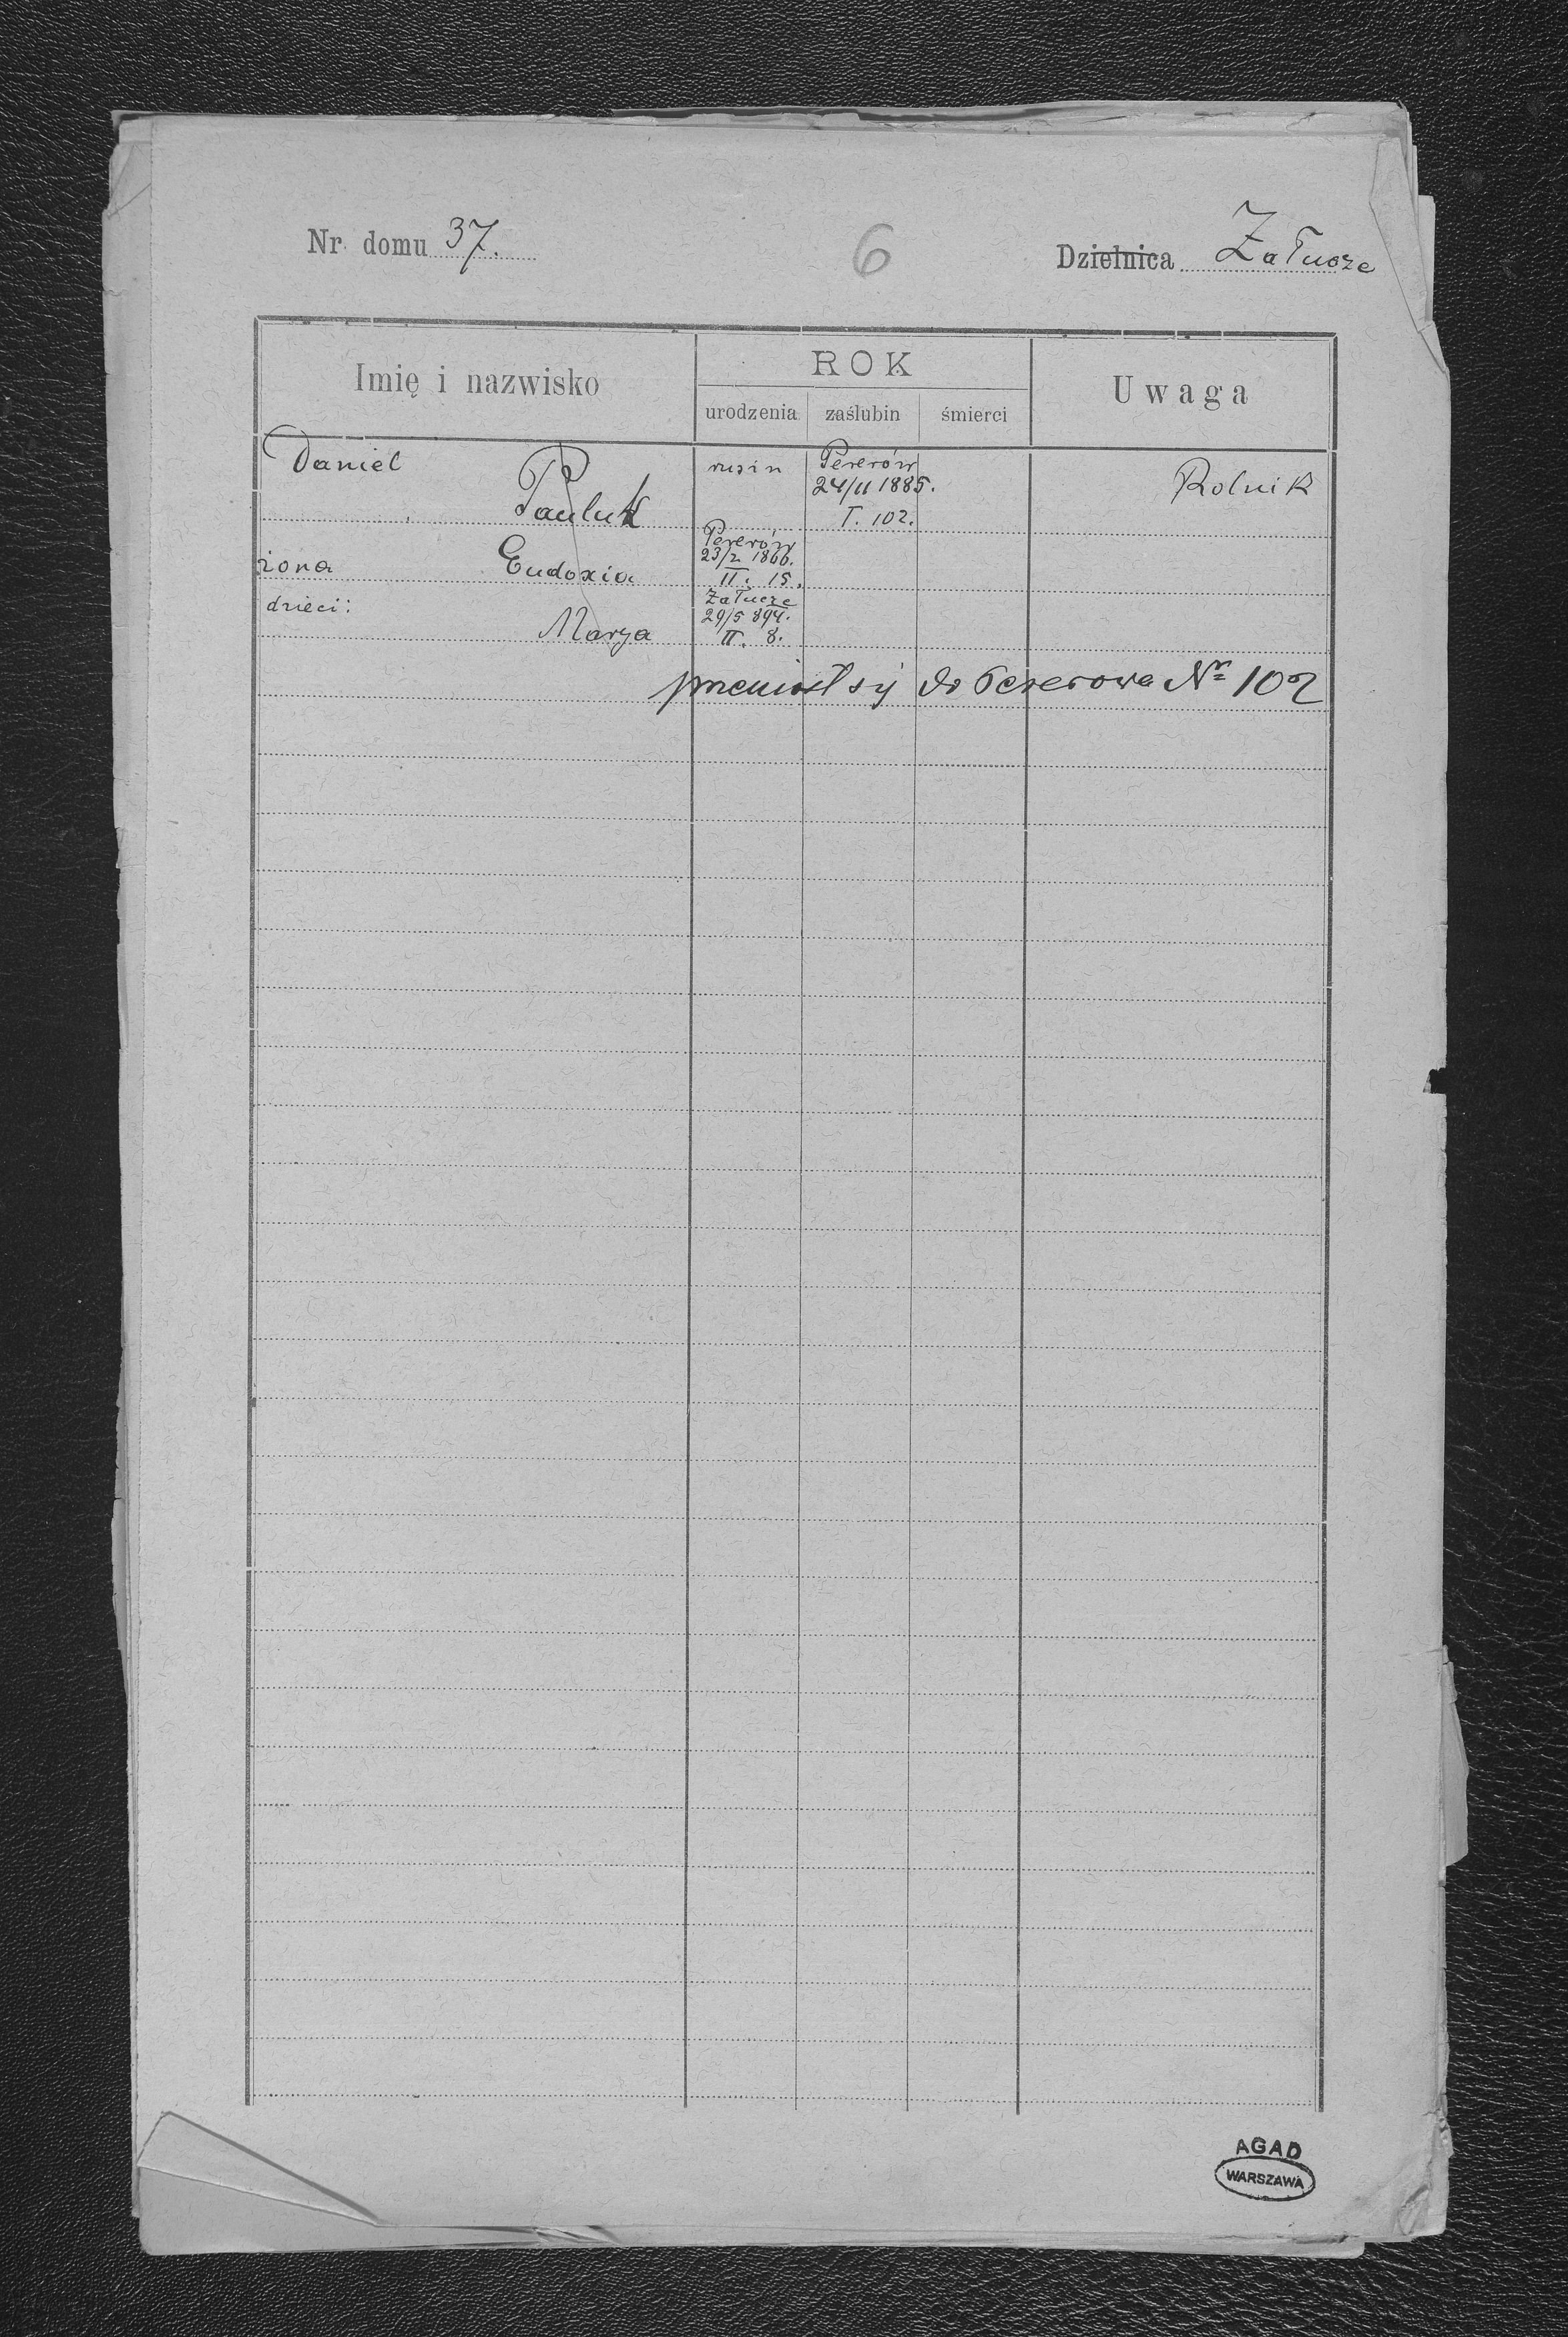 Nr. domu 37.
6
Dzielnica Załucze
Imię i nazwisko
ROK
urodzenia
zaślubin
śmierci
Uwaga
Daniel
Pauluk
rusin
Pererów
24/11 1885.
T. 102.
Rolnik
żona Eudoxia
Pererów
23/2 1866.
II. 15.
dzieci:
Marya
Załucze
29/5 894.
II. 8.
przeniosł się do Pererowa Nr 102
AGAD
WARSZAWA